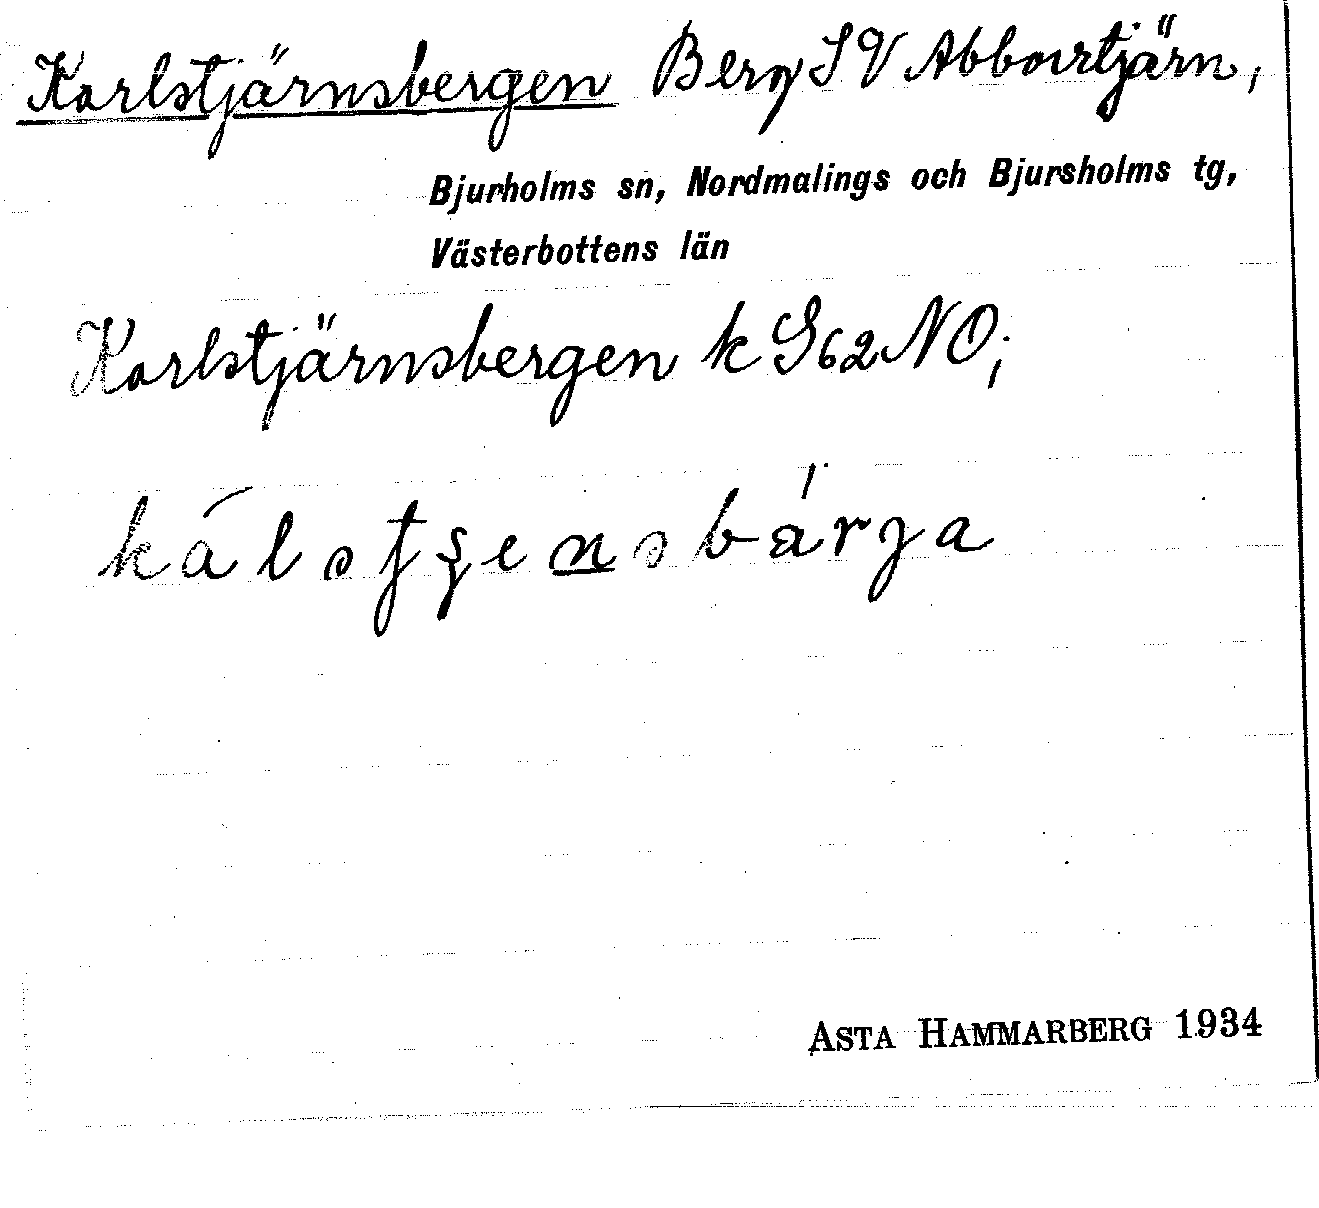 Karlstjärnsbergen Berg SV Abborrtjärn,
Bjurholms sn, Nordmalings och Bjursholms tg,
Västerbottens län
Karlstjärnsbergen k G62NO;
ASTA HAMMARBERG 1934